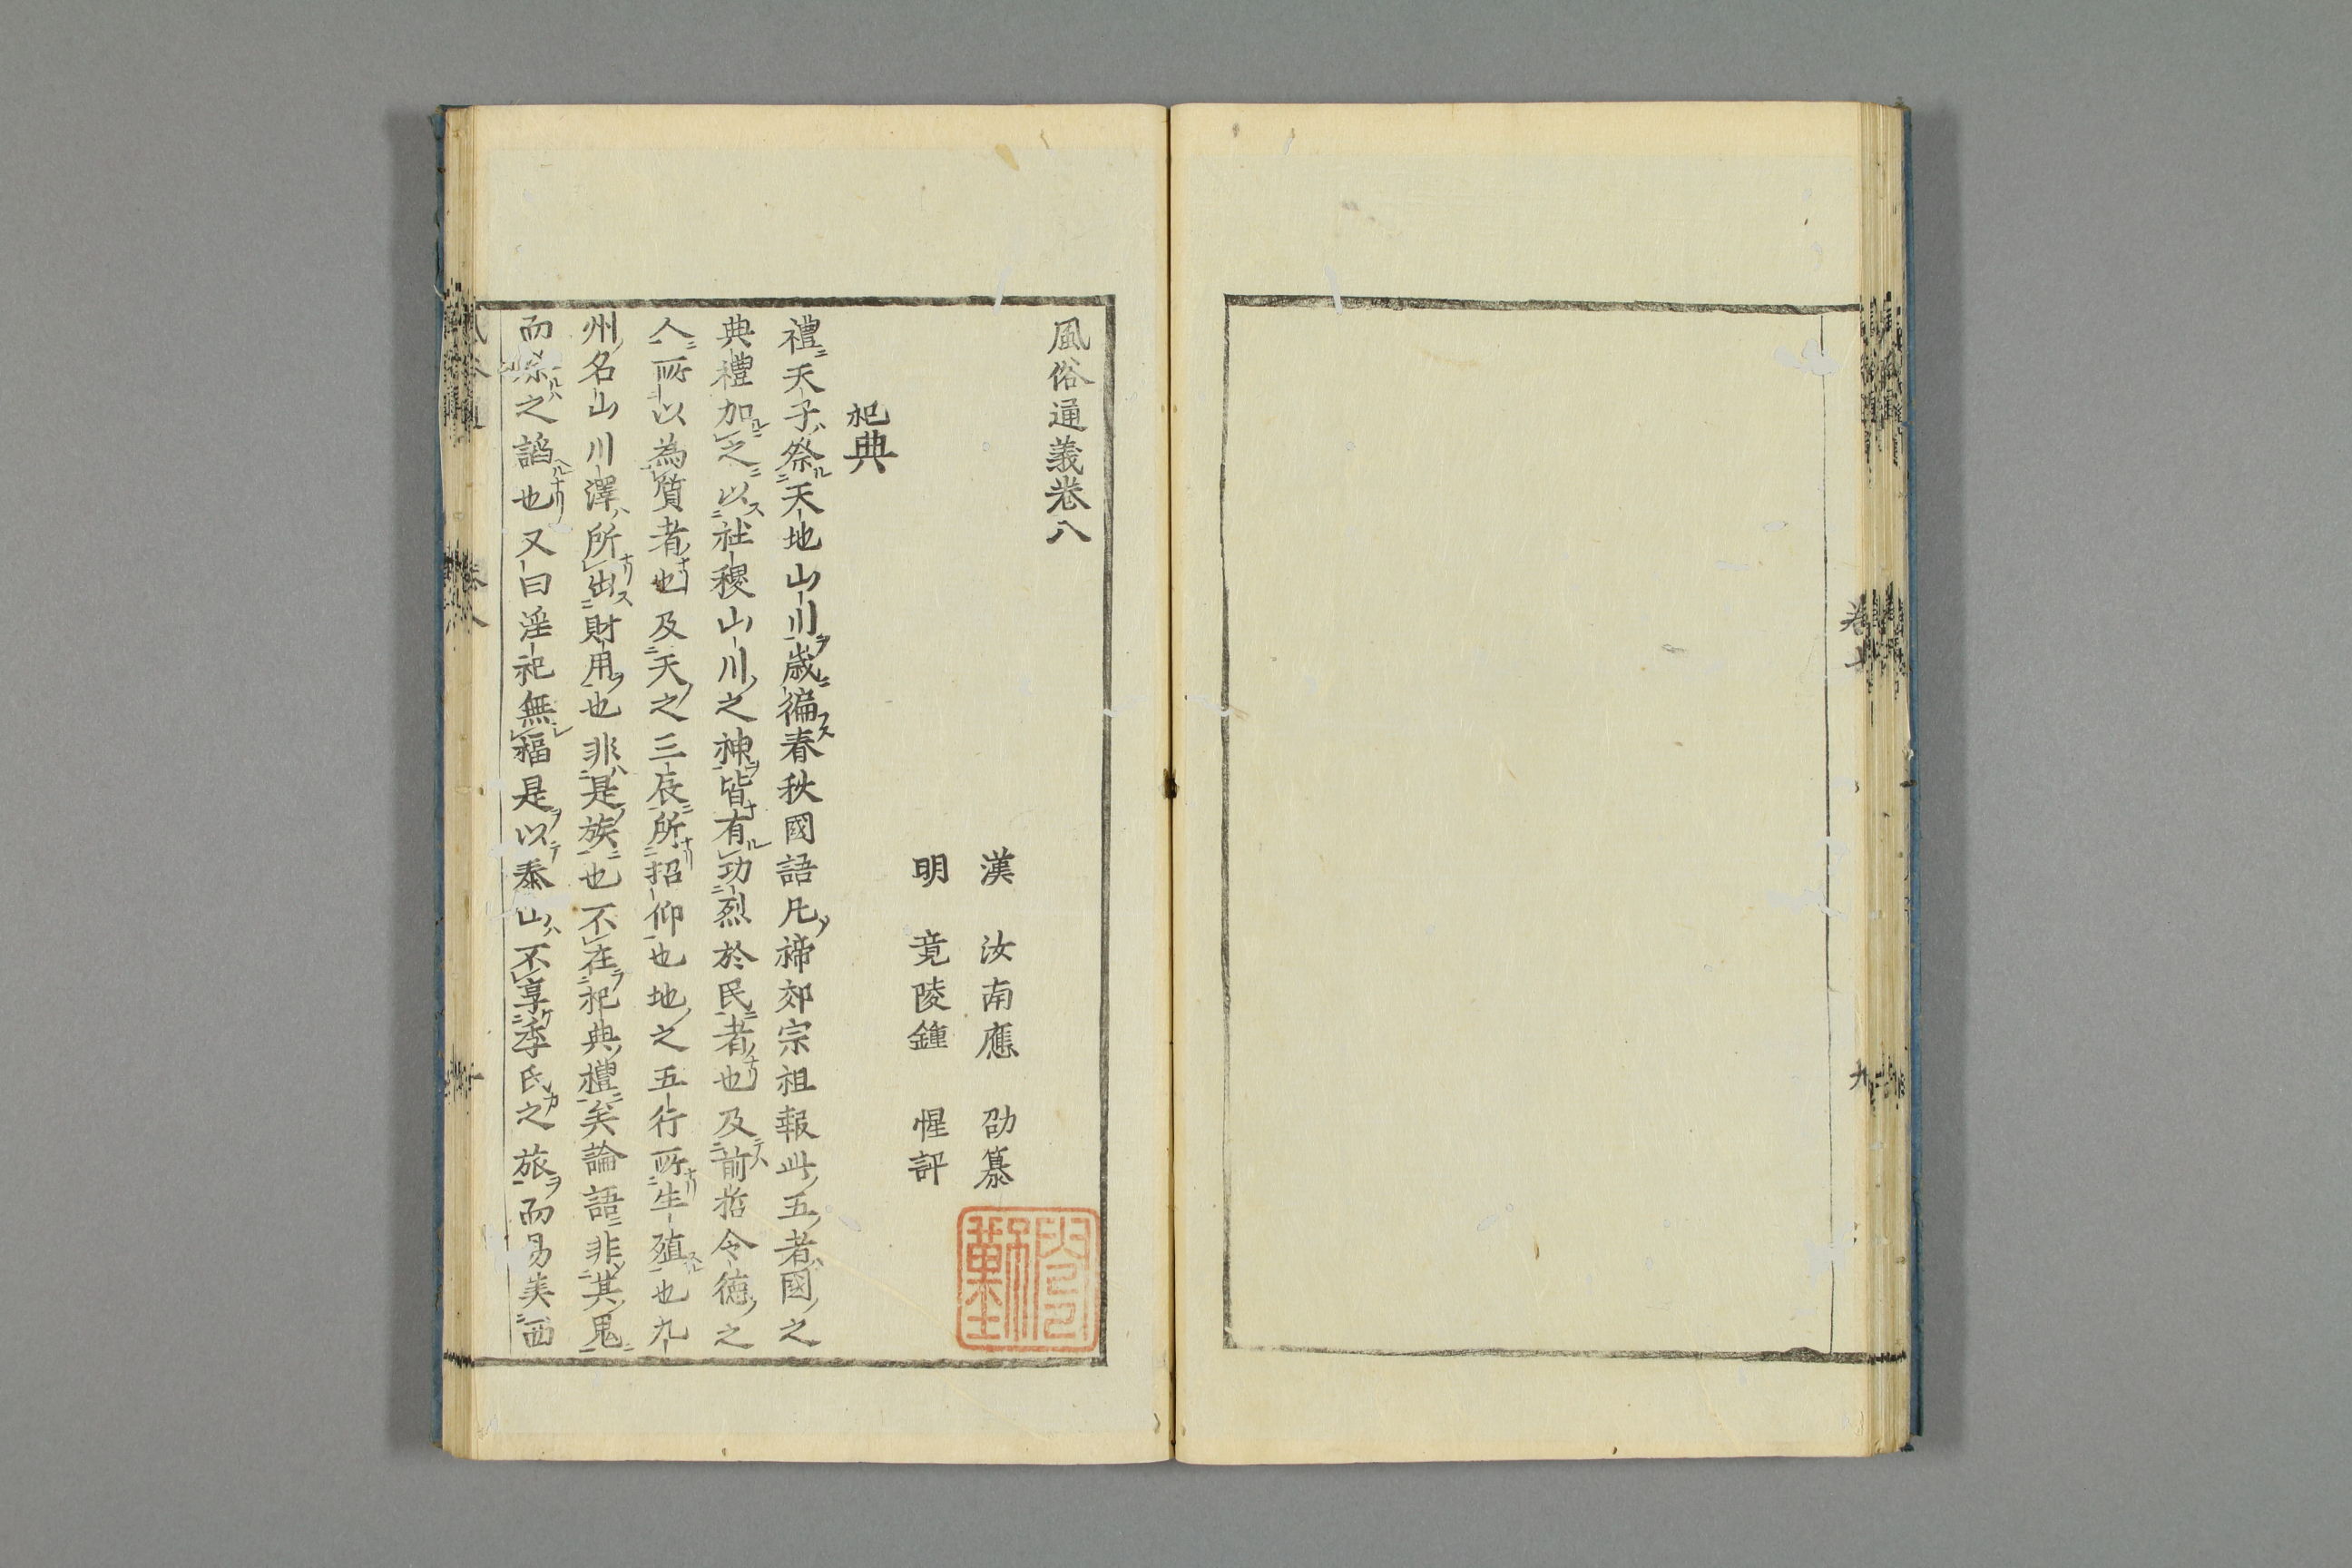 卷七
九
風俗通義卷八
漢 汝南應 劭纂
明 竟陵鍾 惺評
祀典
禮天子祭天地山川歲徧春秋國語凡禘郊宗祖報此五者國之
典禮加之以社稷山川之神皆有功烈於民者也及前哲令德之
人所以為質者也及天之三辰所招仰也地之五行所生殖也九
州名山川澤所出財用也非是族也不在祀典禮矣論語非其鬼
而祭之謟也又曰淫祀無福是以泰山不享季氏之旅而易美西
卷八